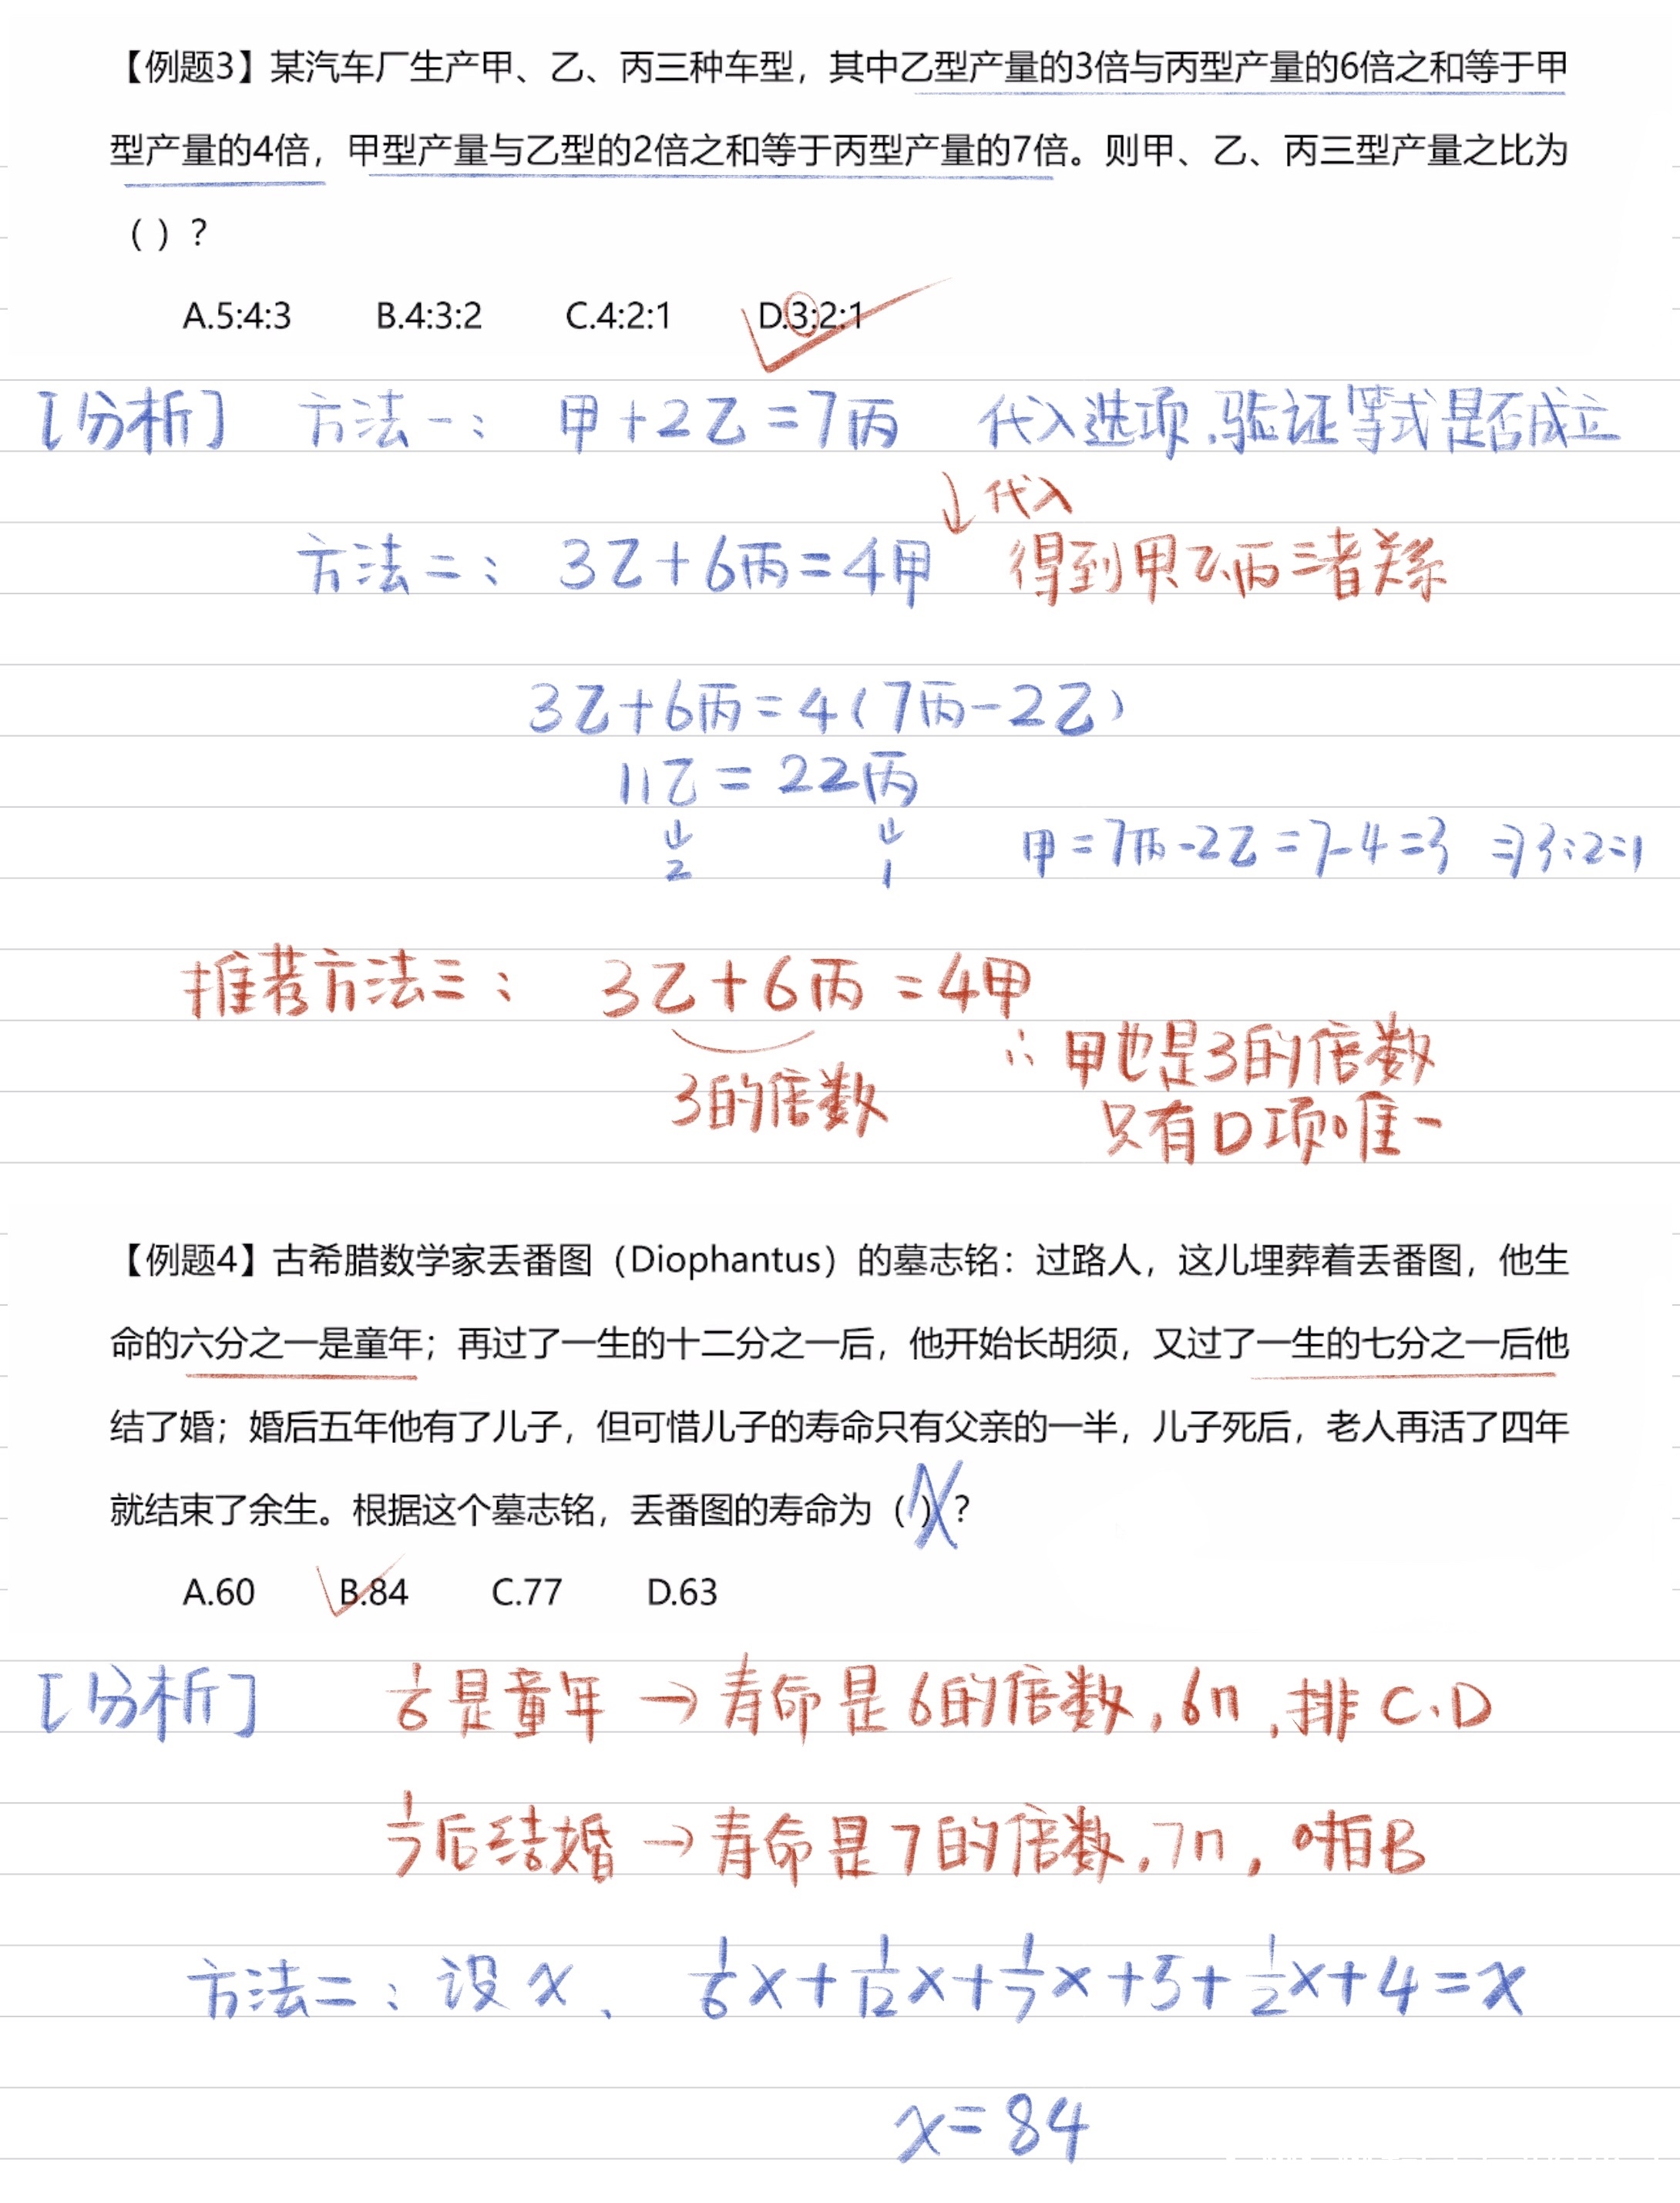 【例题3】某汽车厂生产甲、乙、丙三种车型，其中乙型产量的3倍与丙型产量的6倍之和等于甲
型产量的4倍，甲型产量与乙型的2倍之和等于丙型产量的7倍。则甲、乙、丙三型产量之比为
（）？
A.5:4:3 B.4:3:2 C.4:2:1 D.3:2:1
[分析] 方法一： 甲+2乙=7丙 代入选项，验证等式是否成立
↓代入
方法二： 3乙+6丙=4甲 得到甲乙、丙三者关系
3乙+6丙=4(7丙-2乙)
11乙=22丙
⇓ ⇓ 甲=7丙-2乙=7-4=3 ⇒3:2:1
2 1
推荐方法三： 3乙+6丙=4甲
∴甲也是3的倍数
3的倍数
只有D项唯一
【例题4】古希腊数学家丢番图（Diophantus）的墓志铭：过路人，这儿埋葬着丢番图，他生
命的六分之一是童年；再过了一生的十二分之一后，他开始长胡须，又过了一生的七分之一后他
结了婚；婚后五年他有了儿子，但可惜儿子的寿命只有父亲的一半，儿子死后，老人再活了四年
就结束了余生。根据这个墓志铭，丢番图的寿命为（）？
x
A.60 B.84 C.77 D.63
[分析] 1/6是童年→寿命是6的倍数，6n，排C、D
1/7后结婚→寿命是7的倍数，7n，唯有B
方法二：设x、 1/6x+1/12x+1/7x+5+1/2x+4=x
x=84